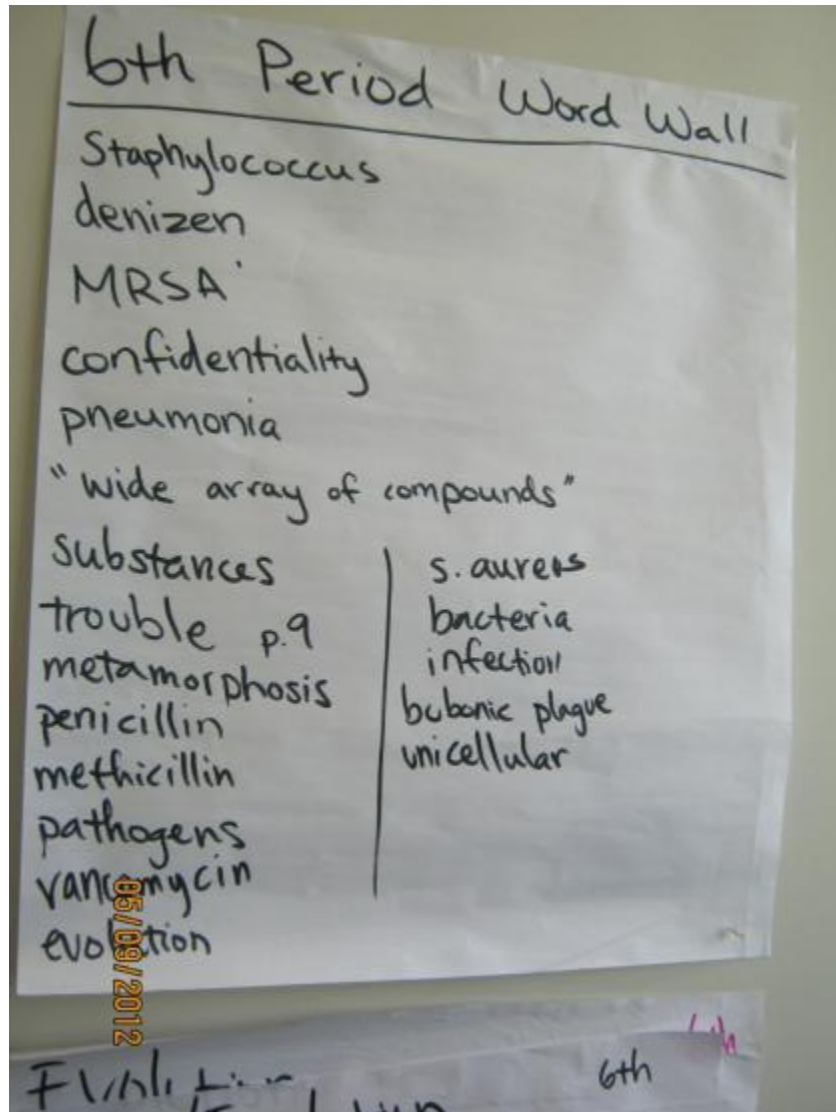 6th Period Word Wall
Staphylococcus
denizen
MRSA
confidentiality
pneumonia
"wide array of compounds"
substances
trouble p.9
metamorphosis
penicillin
methicillin
pathogens
vancomycin
evolution
s. aureus
bacteria
infection
bubonic plague
unicellular
05/09/2012
6th
6th